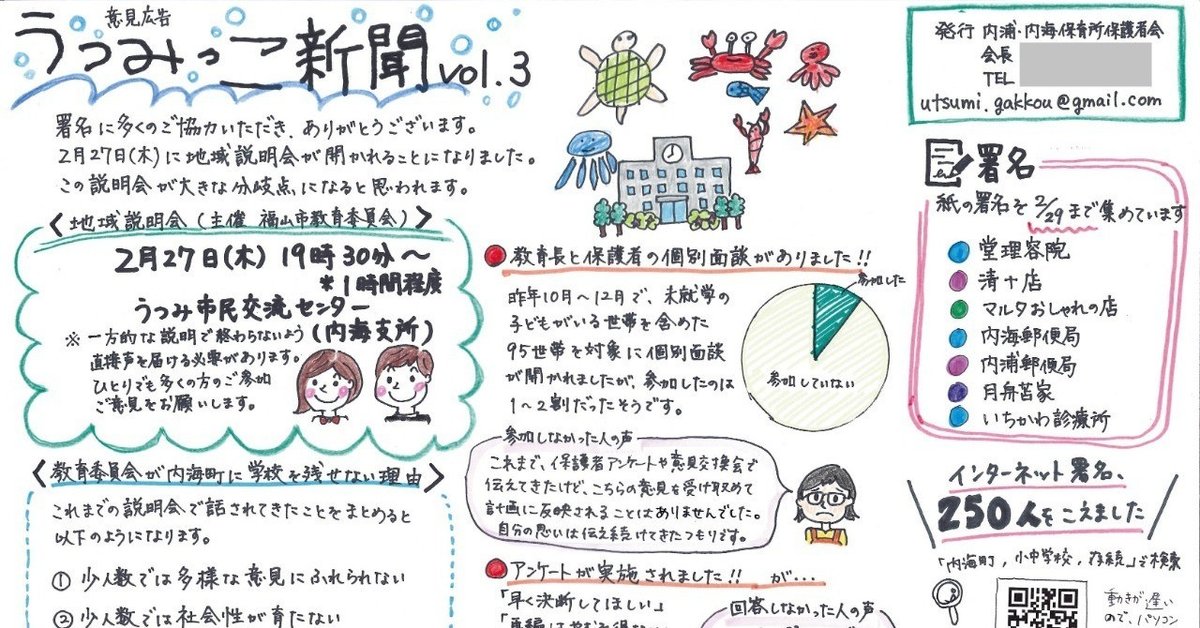 意見広告
うつみっこ新聞 vol.3
署名に多くのご協力いただき、ありがとうございます。
2月27日(木)に地域説明会が開かれることになりました。
この説明会が大きな分岐点になると思われます。
〈地域説明会(主催 福山市教育委員会)〉
2月27日(木) 19時30分~
*1時間程度
うつみ市民交流センター
(内海支所)
※一方的な説明で終わらないよう
直接声を届ける必要があります。
ひとりでも多くの方のご参加
ご意見をお願いします。
〈教育委員会が内海町に学校を残せない理由〉
これまでの説明会で話されてきたことをまとめると
以下のようになります。
① 少人数では多様な意見にふれられない
② 少人数では社会性が育たない
教育長と保護者の個別面談がありました!!
昨年10月~12月で、未就学の
子どもがいる世帯を含めた
95世帯を対象に個別面談
が開かれましたが、参加したのは
1~2割だったそうです。
参加した
参加していない
参加しなかった人の声
これまで、保護者アンケートや意見交換会で
伝えてきたけど、こちらの意見を受け取めて
計画に反映されることはありませんでした。
自分の思いは伝え続けてきたつもりです。
アンケートが実施されました!! が…
「早く決断してほしい」
回答しなかった人の声
発行 内浦・内海保育所保護者会
会長
TEL
utsumi.gakkou@gmail.com
署名
紙の署名を2/29まで集めています
堂理容院
清十店
マルタおしゃれの店
内海郵便局
内浦郵便局
月舟苫家
いちかわ診療所
インターネット署名、
250人をこえました
「内海町,小中学校,存続」で検索
動きが遅い
ので、パソコン